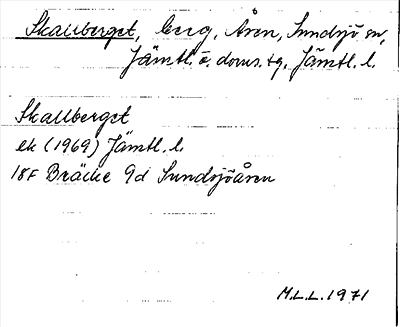 Skallberget, berg, Åsen, Sundsjö sn,
Jämtl. ö. doms. tg, Jämtl. l.
Skallberget
ek (1969) Jämtl. l
18F Bräcke 9d Sundsjöåsen
M.L.L. 1971